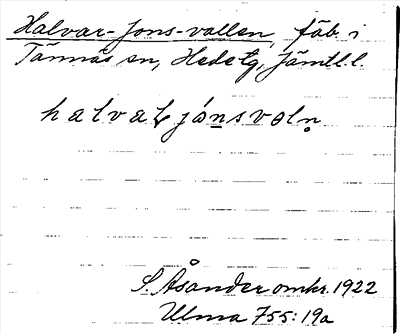 Halvar-Jons-vallen, fäb. i
Tännäs sn, Hede tg, Jämtl. l.
halvaɽjónsvəln̥
S. Åsander omkr. 1922
Ulma 755:19a